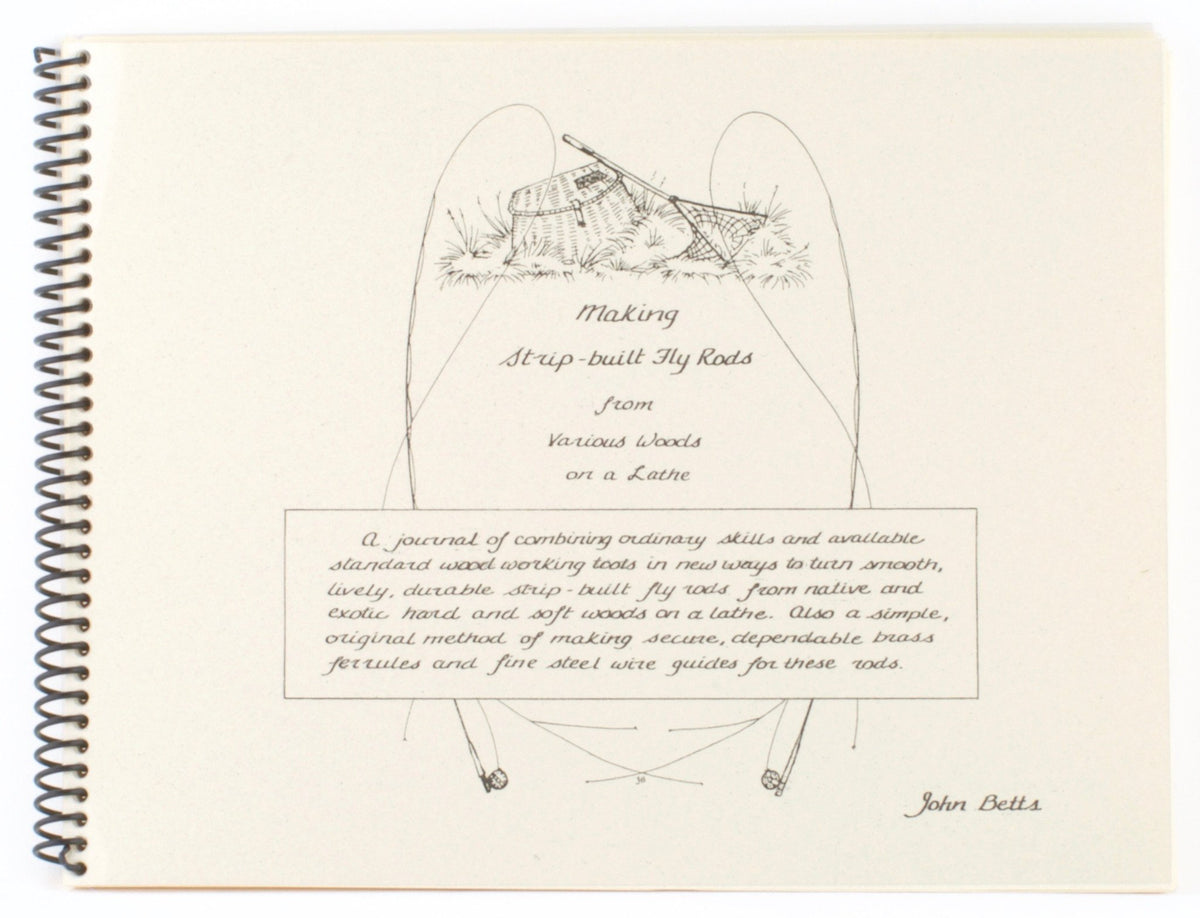 Making
Strip-built Fly Rods
from
Various Woods
on a Lathe
A journal of combining ordinary skills and available
standard wood working tools in new ways to turn smooth,
lively, durable strip-built fly rods from native and
exotic hard and soft woods on a lathe. Also a simple,
original method of making secure, dependable brass
ferrules and fine steel wire guides for these rods.
John Betts